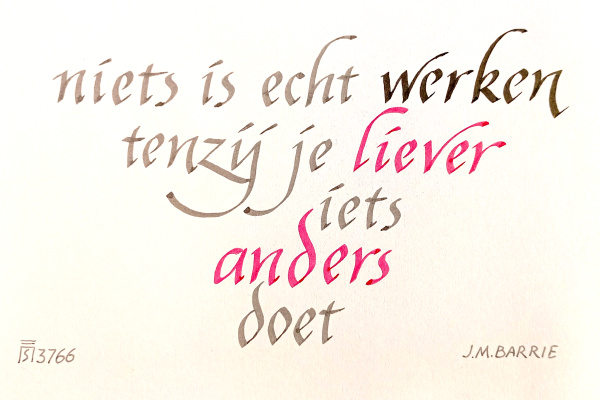 niets is echt werken
tenzij je liever
iets
anders
doet
3766
J.M.BARRIE